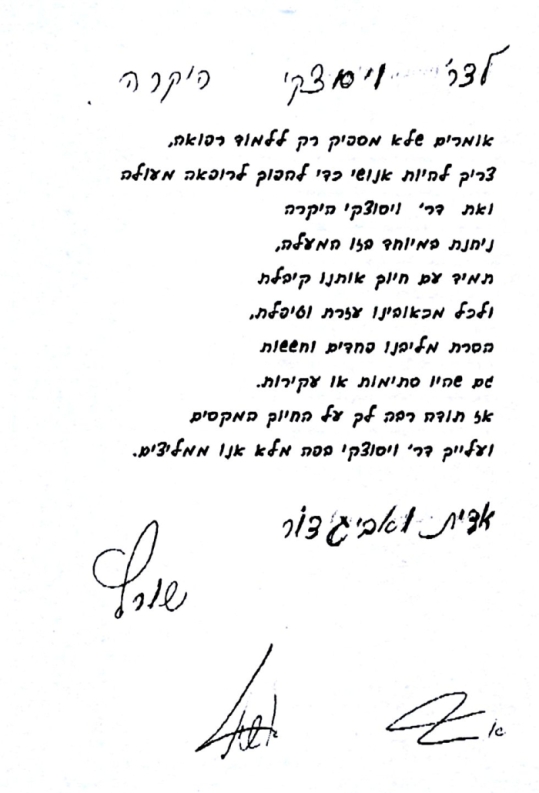 לדר' ויסוצקי היקרה
אומרים שלא מספיק רק ללמוד רפואה,
צריך להיות אנושי כדי להפוך לרופאה מעולה
ואת דר' ויסוצקי היקרה
ניחנת במיוחד בזו המעלה,
תמיד עם חיוך אותנו קיבלת
ולכל מכאובינו עזרת וטיפלת,
הסרת מליבנו פחדים וחששות
גם שהיו סתימות או עקירות.
אז תודה רבה לך על החיוך המקסים
ועלייך דר' ויסוצקי בפה מלא אנו ממליצים.
אדית ואביגדור